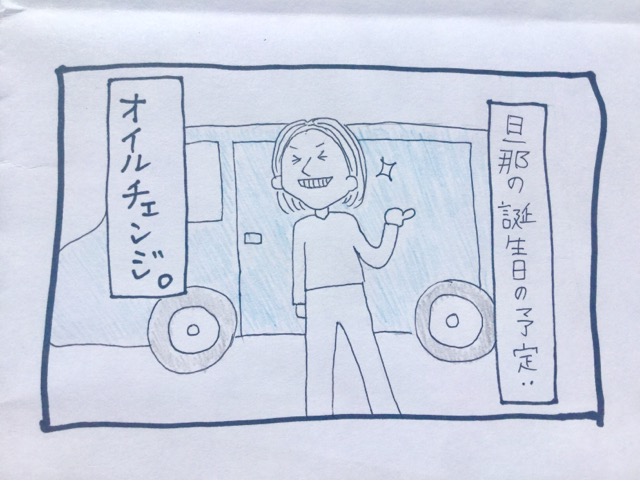 旦那の誕生日の予定：
オイルチェンジ。